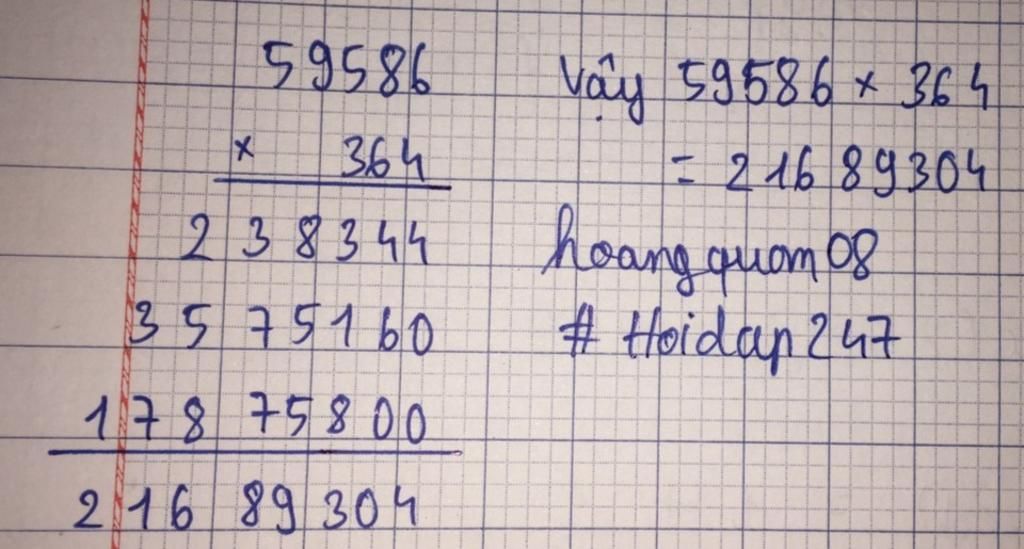 59586
× 364
238344
3575160
17875800
21689304
Vậy 59586 × 364
= 21689304
hoangquam08
# Hoidap247